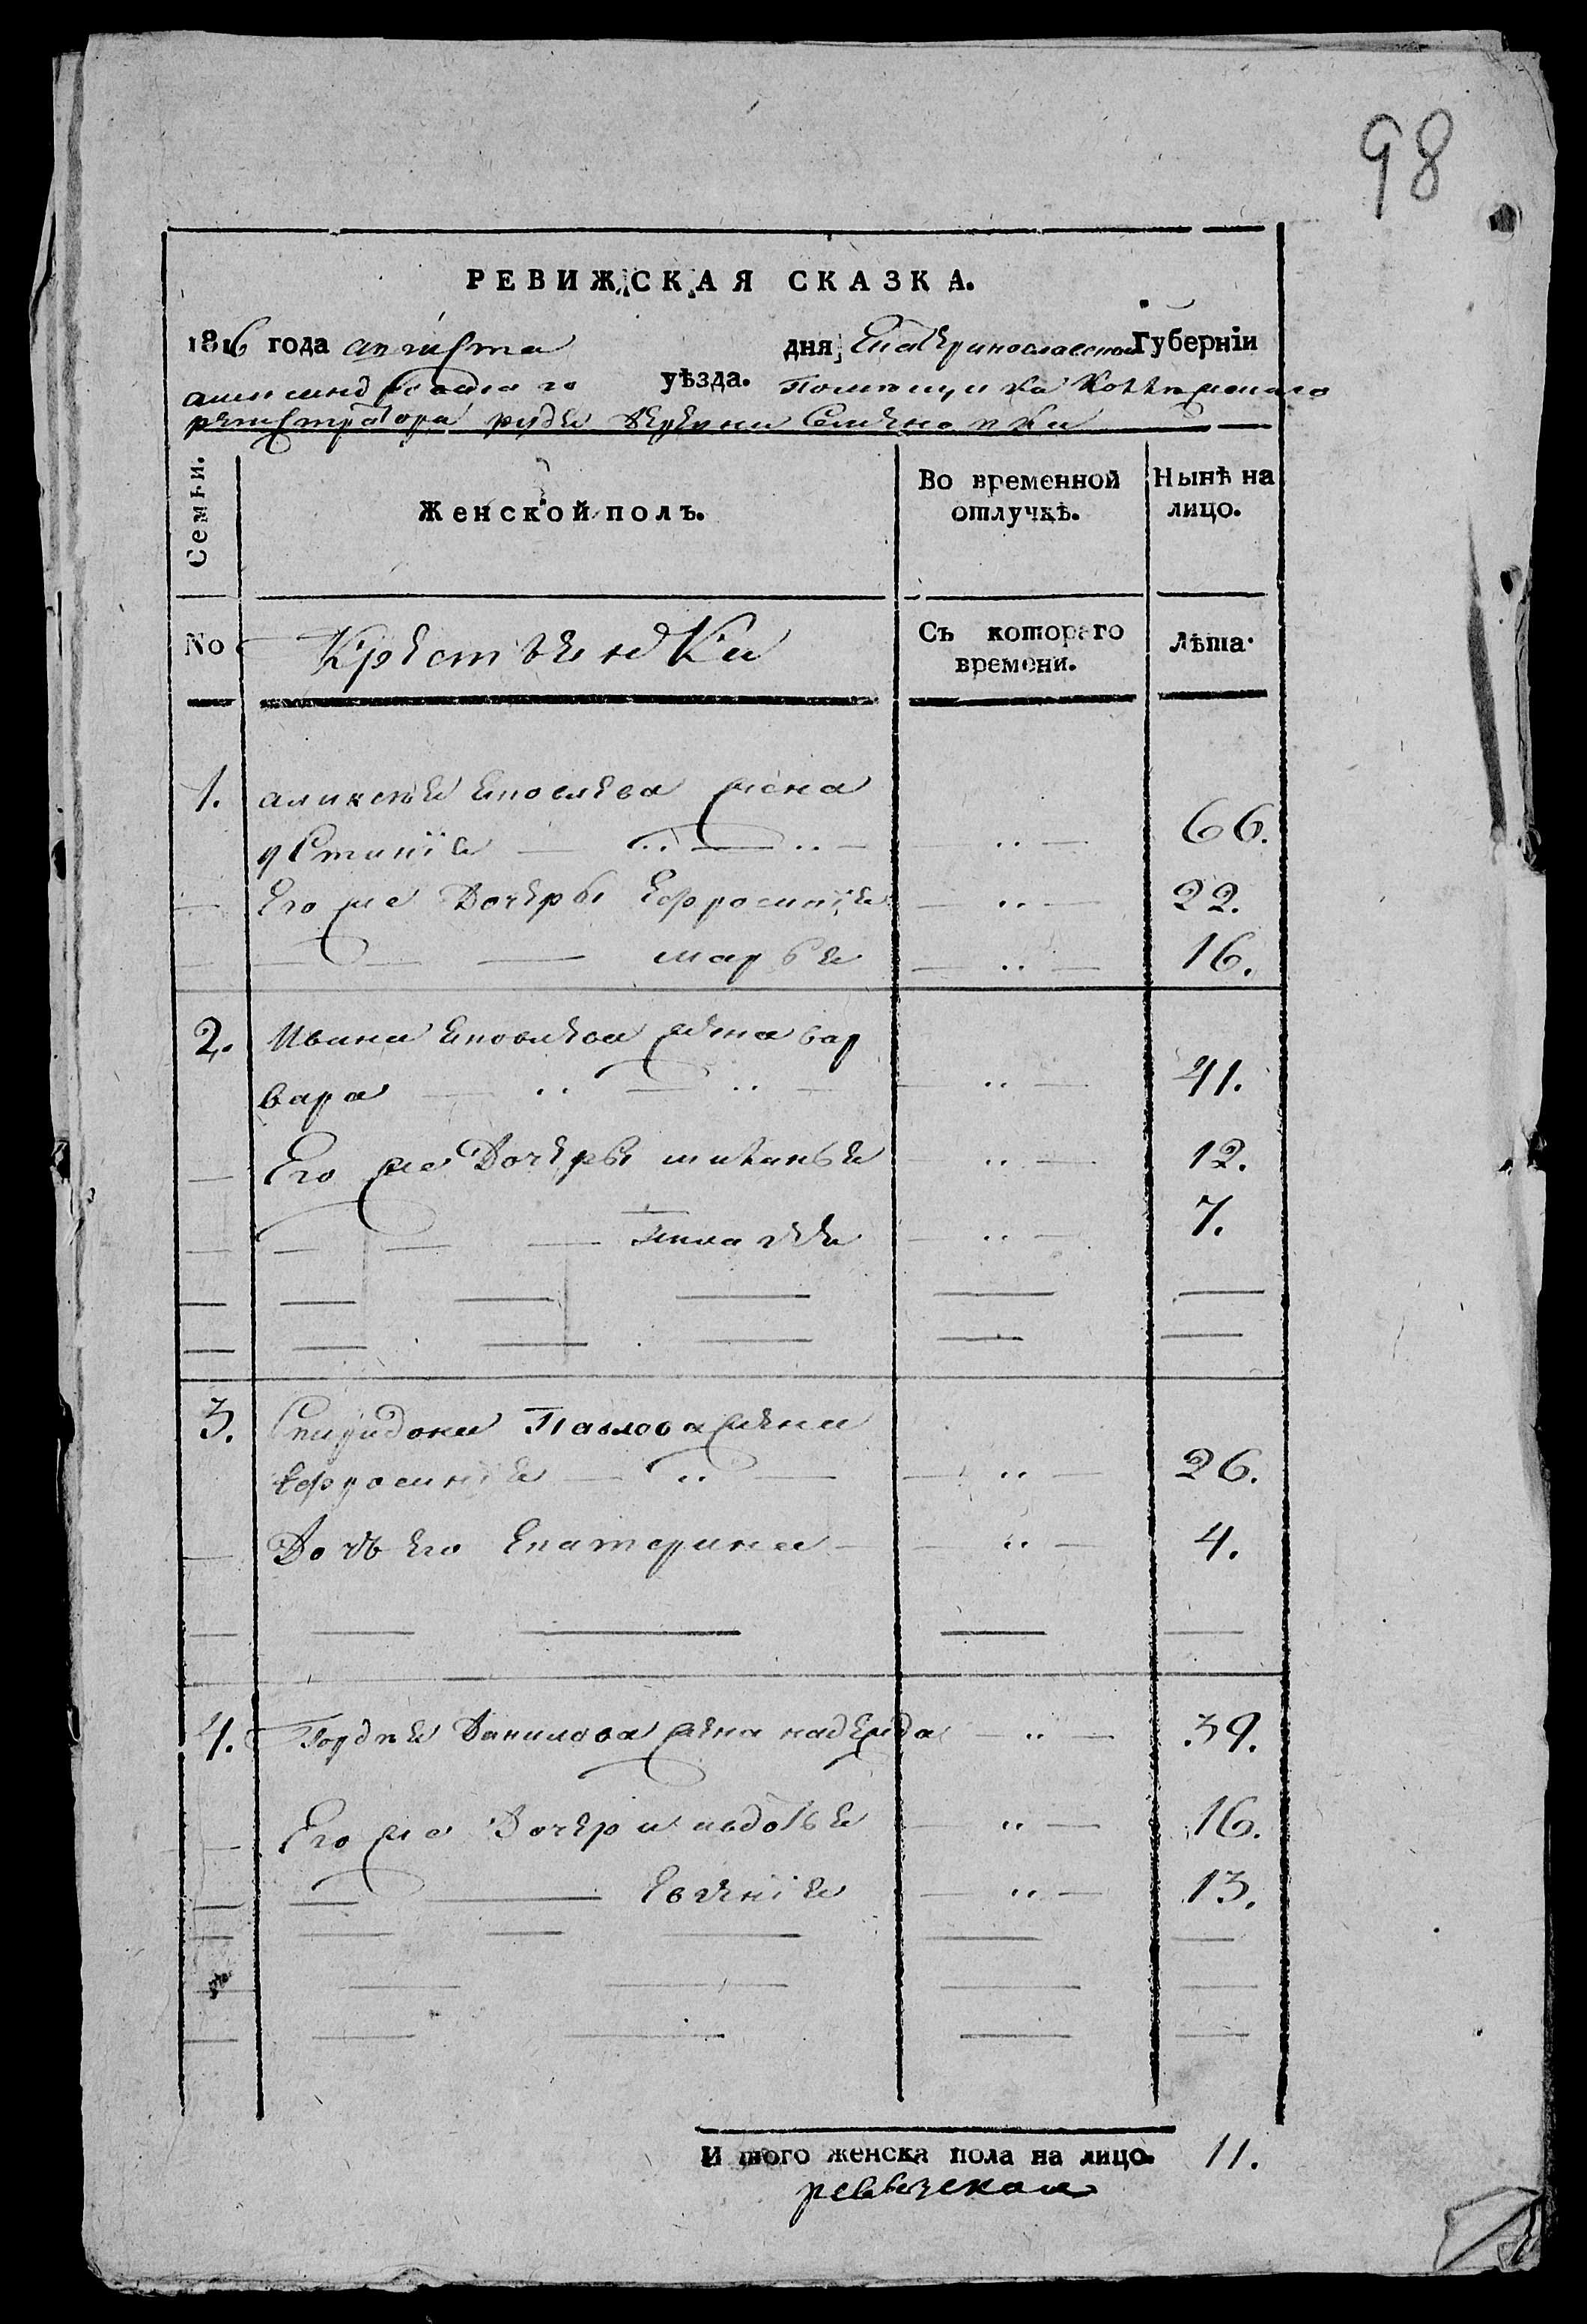 98
РЕВИЖСКАЯ СКАЗКА.
1816 года августа дня Екатеринославской Губерніи
александровского уѣзда. Помещика Коллежскаго
регистратора деревни Семеновки
Семьи.
Женской полъ.
Во временной отлучкѣ.
Нынѣ на лицо.
No
Крестьянки
Съ котораго времени.
Лѣта.
1. алексея яковлева жена
устинія — .. — .. — — .. — 66.
— Его же Дочеры Ефросинія — .. — 22.
— — — — марья — .. — 16.
2. Ивана яковлева жена вар
вара — .. — .. — — .. — 41.
— Его же Дочеры меланья — .. — 12.
— — — — пелагея — .. — 7.
3. Спиридона Павлова жена
ефросинія — .. — — .. — 26.
— Дочь Его Екатерина — — .. — 4.
4. Гордея Данилова жена надежда — .. — 39.
— Его же Дочери авдотья — .. — 16.
— — — Евгенія — .. — 13.
И того женска пола на лицо. 11.